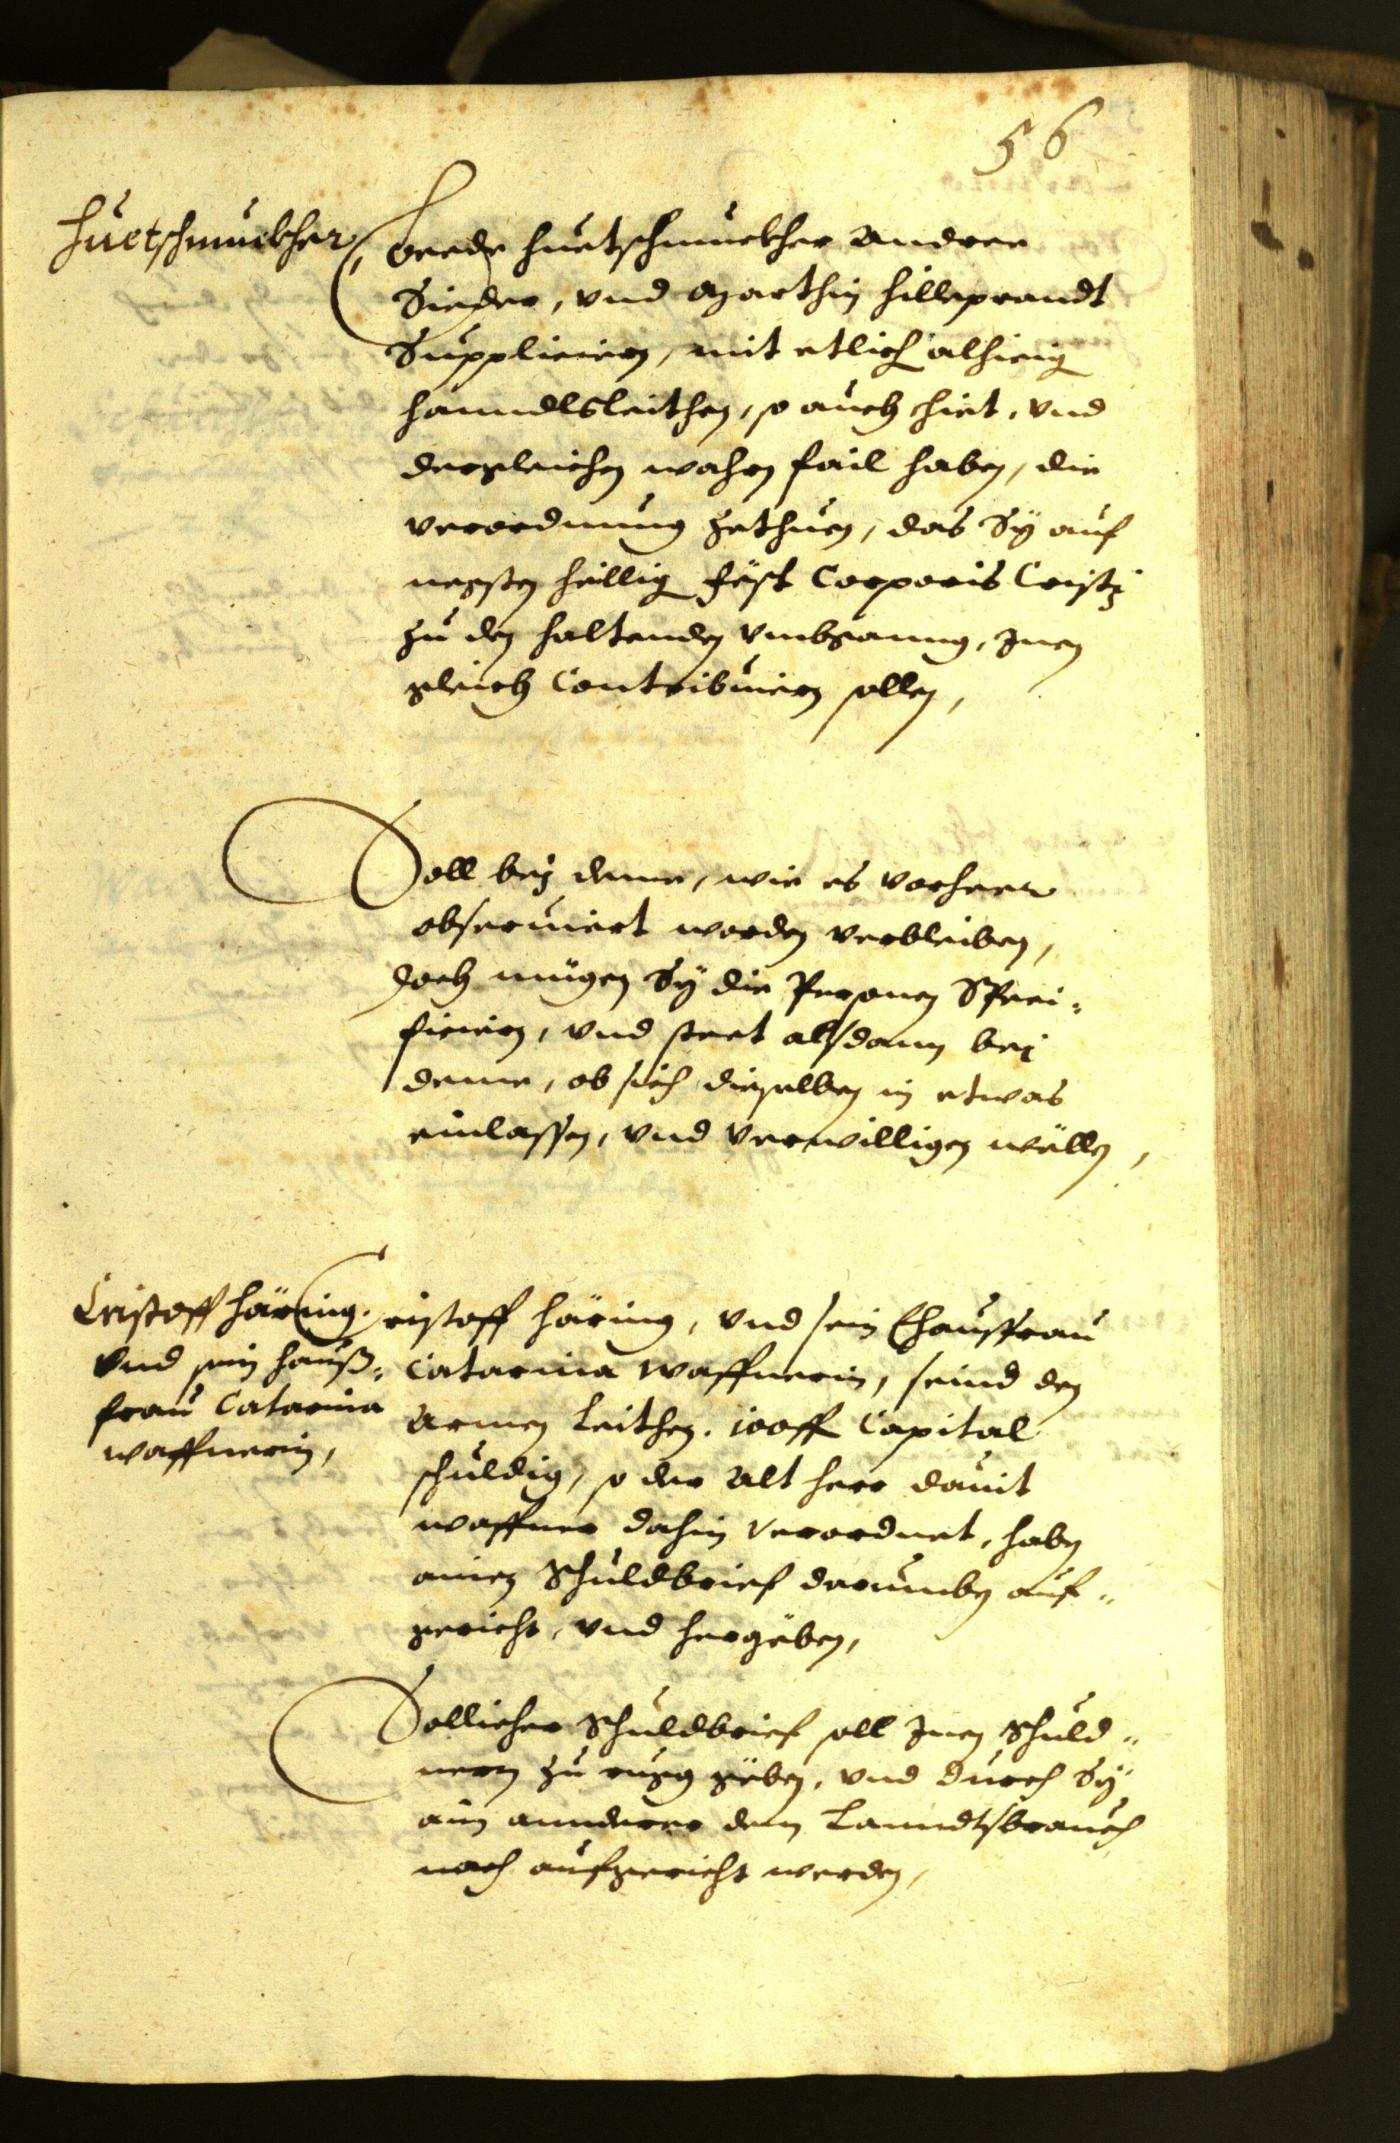 56
Huetschmuckher
Beede Huetschmuckher Andree
Sieder, vnd Marthin Hilleprandt
Supplicieren, mit etlich alhieig
Hanndlsleithen, so auch hiet, vnd
dergleichen wahren fail haben, die
verordnung zethuen, das Sÿ auf
negsten heillig Fest Corporis Cristj
zu den haltenden vmbganng, Inen
gleich Contribuiern sollen,
Soll beÿ deme, wie es vorherr
obseruiert worden verbleiben,
doch mügen Sÿ die Personen Speci-
ficiern, vnd steet alsdann bei
deme, ob sich dieselben in etwas
einlassen, vnd verwilligen wöllen,
Cristoff Häring.
vnd sein Hauß-
frau Catarina
Waffnerin,
Cristoff Häring, vnd sein Ehausfrau
Catarina Waffnerin, seind den
Armen Leithen. 100 ff Capital
schuldig, so der Alt Herr Dauit
Waffner dahin verordnet, haben
ainen Schuldbrief darumben auf-
gericht, vnd hergeben,
Sollicher Schuldbrief soll Inen Schuld-
nern zu rugg geben, vnd durch Sÿ
ain annderer dem Lanndtsbrauch
nach aufgericht werden,